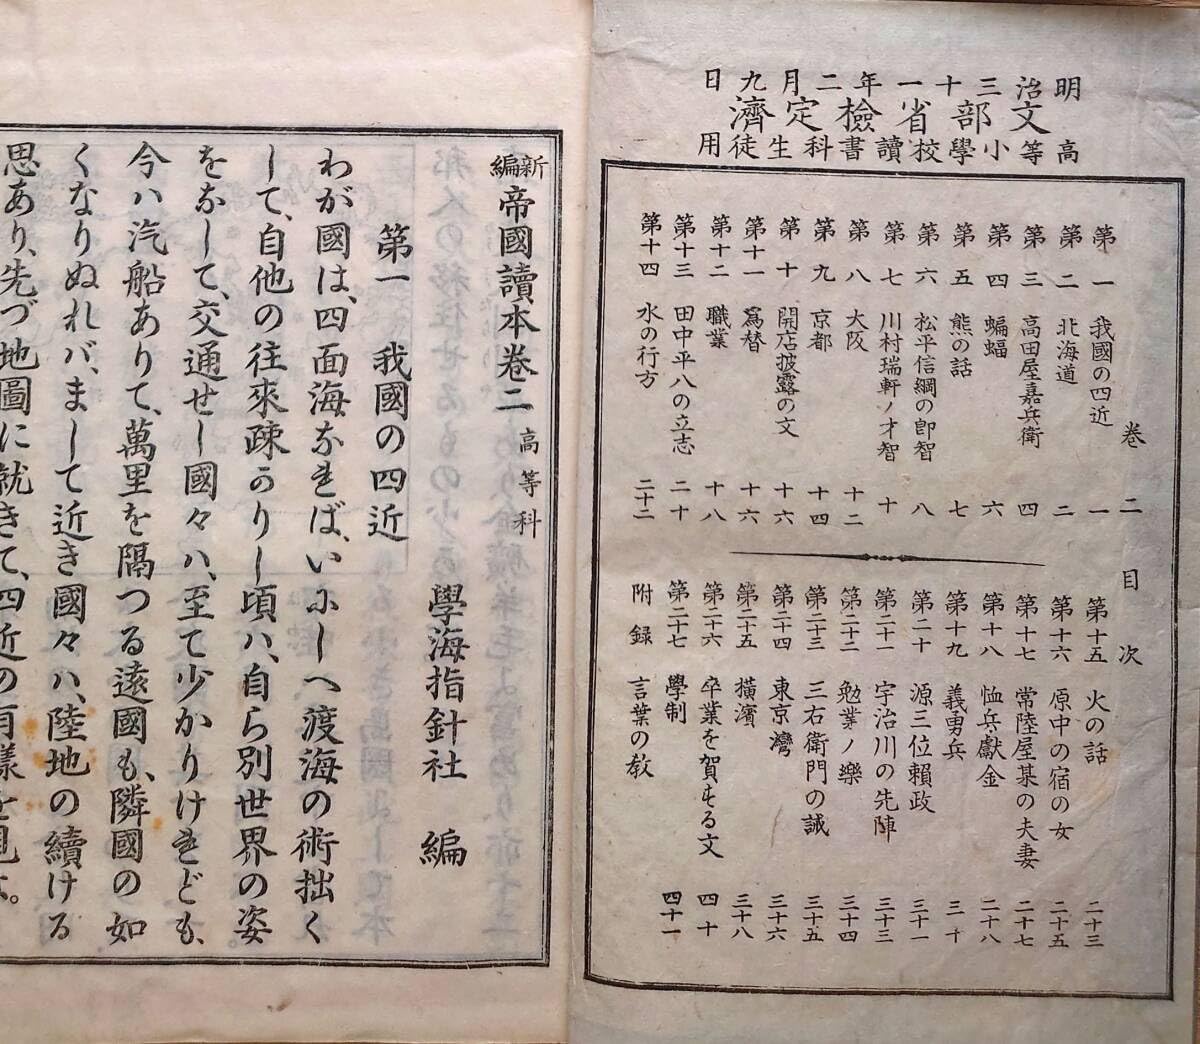 明治三十一年二月九日
文部省檢定濟
高等小學校讀書科生徒用
卷二目次
第一 我國の四近 一
第二 北海道 二
第三 高田屋嘉兵衛 四
第四 蝙蝠 六
第五 熊の話 七
第六 松平信綱の卽智 八
第七 川村瑞軒ノ才智 十
第八 大阪 十二
第九 京都 十四
第十 開店披露の文 十六
第十一 爲替 十六
第十二 職業 十八
第十三 田中平八の立志 二十
第十四 水の行方 二十二
第十五 火の話 二十三
第十六 原中の宿の女 二十五
第十七 常陸屋某の夫妻 二十七
第十八 恤兵獻金 二十八
第十九 義勇兵 三十
第二十 源三位賴政 三十一
第二十一 宇治川の先陣 三十三
第二十二 勉業ノ樂 三十四
第二十三 三右衛門の誠 三十五
第二十四 東京灣 三十六
第二十五 橫濱 三十八
第二十六 卒業を賀する文 四十
第二十七 學制 四十一
附錄 言葉の敎
新編 帝國讀本卷二 高等科
學海指針社 編
第一 我國の四近
わが國は、四面海なれば、いにしへ渡海の術拙く
して、自他の往來疎かりし頃ハ、自ら別世界の姿
をなして、交通せし國々ハ、至て少かりけれども、
今ハ汽船ありて、萬里を隔つる遠國も、隣國の如
くなりぬれバ、まして近き國々ハ、陸地の續ける
思あり、先づ地圖に就きて、四近の有樣を見よ。